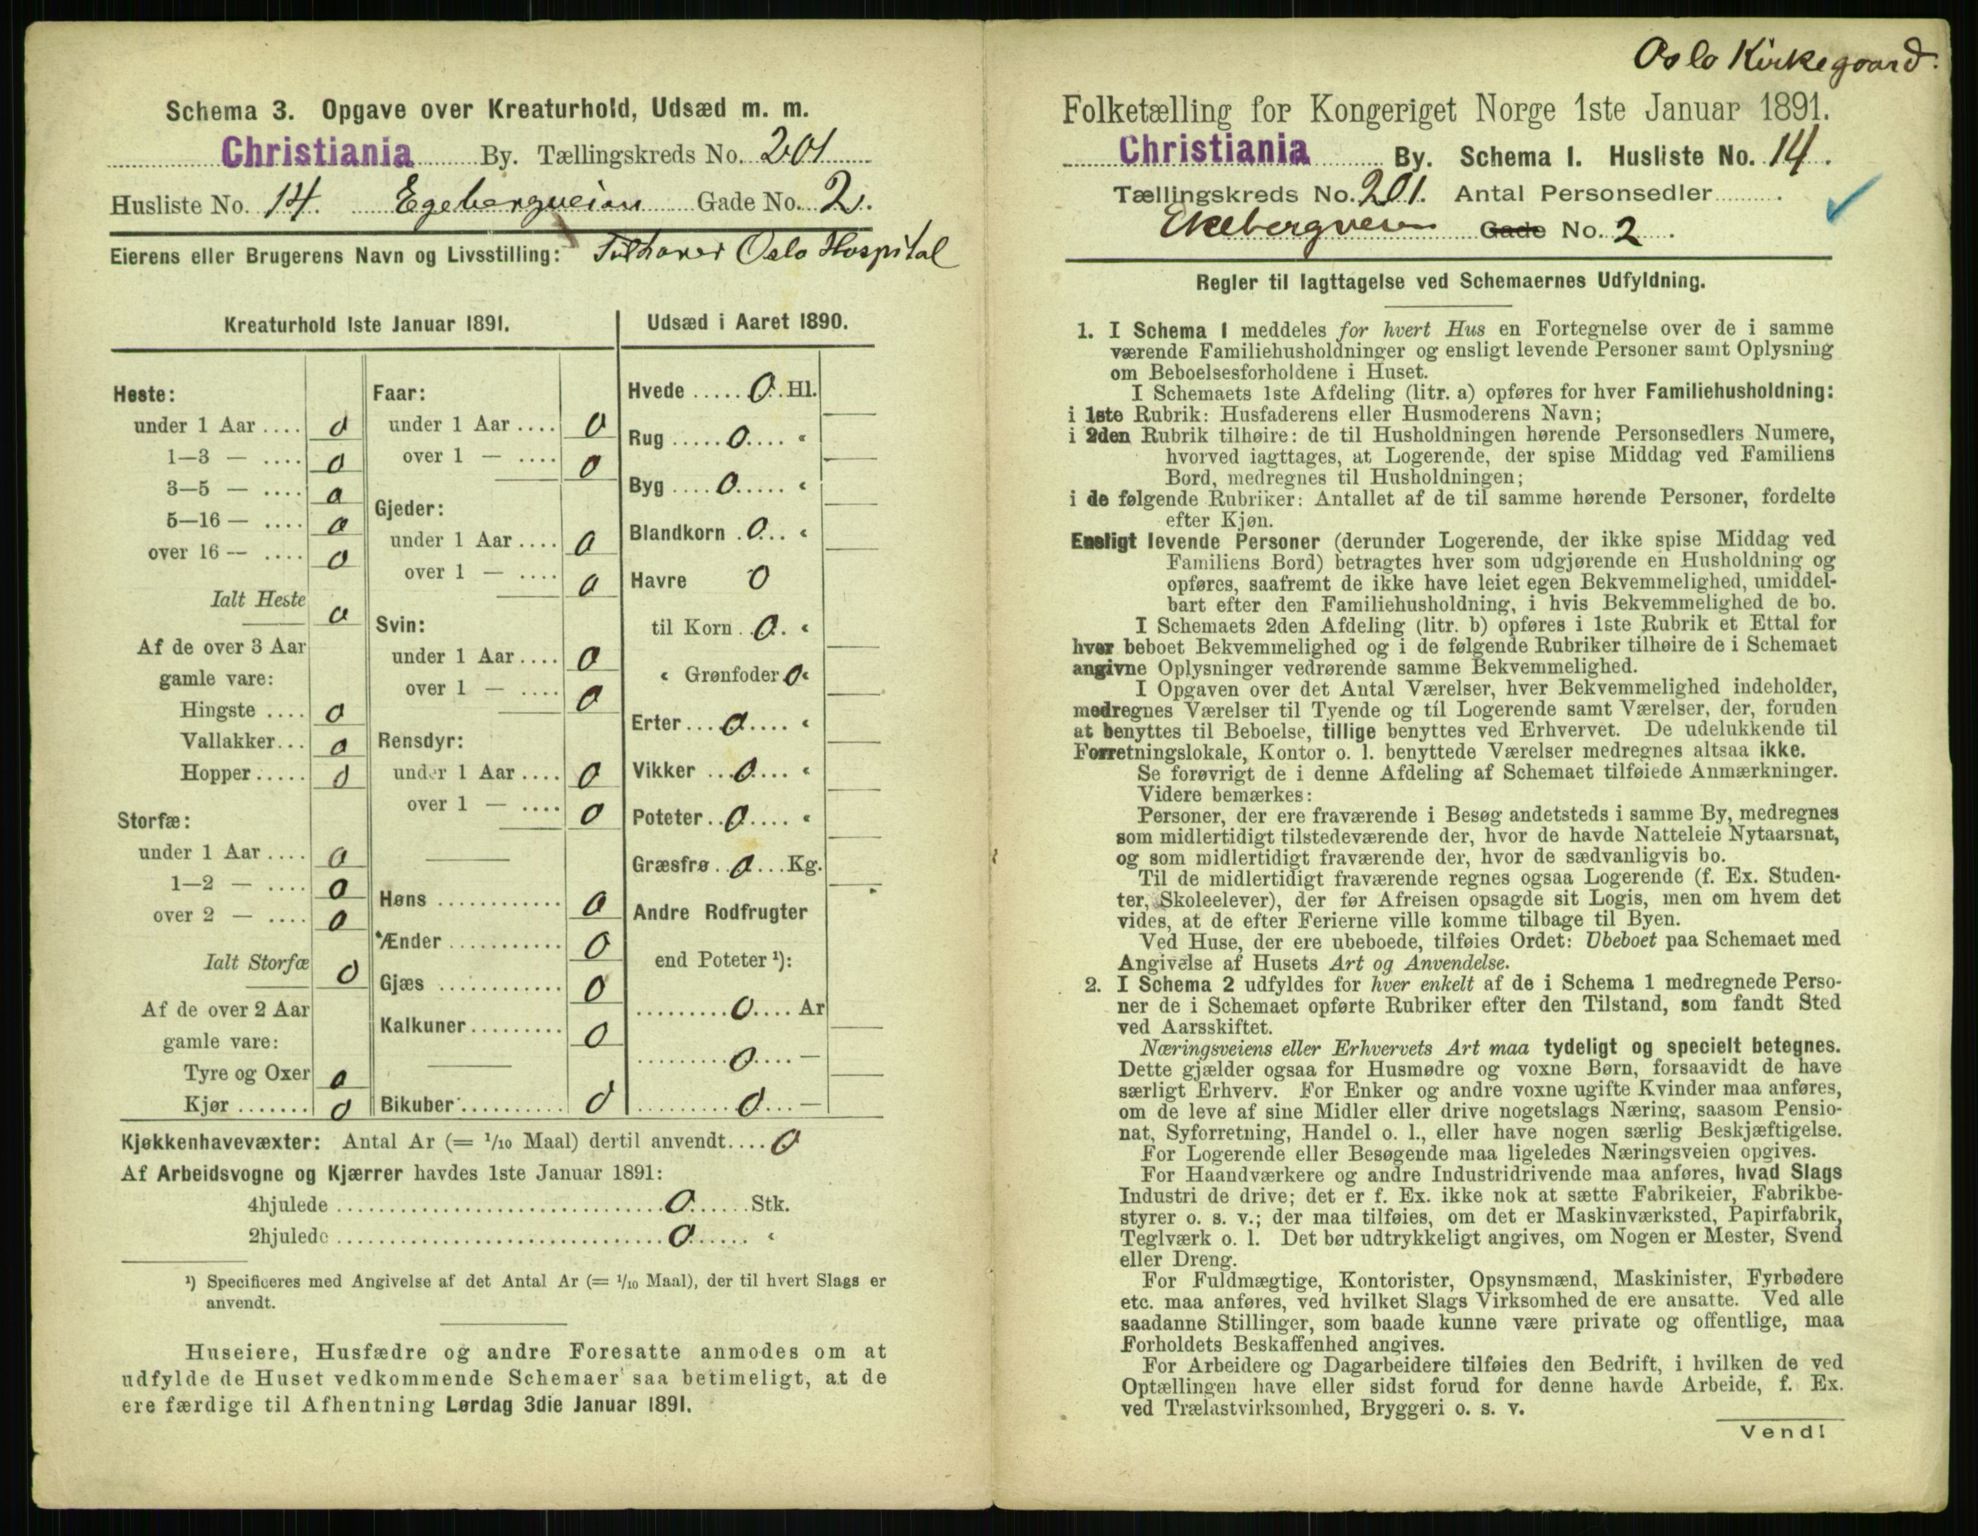 Schema 3. Opgave over Kreaturhold, Udsæd m. m.
Christiania By. Tællingskreds No. 201
Husliste No. 14. Egebergveien Gade No. 2.
Eierens eller Brugerens Navn og Livsstilling: Tilhører Oslo Hospital
Kreaturhold 1ste Januar 1891.
Heste:
under 1 Aar .... 0
1—3 — .... 0
3—5 — .... 0
5—16 — .... 0
over 16 — .... 0
Ialt Heste 0
Af de over 3 Aar
gamle vare:
Hingste .... 0
Vallakker... 0
Hopper..... 0
Storfæ:
under 1 Aar .... 0
1—2 — .... 0
over 2 — .... 0
Ialt Storfæ 0
Af de over 2 Aar
gamle vare:
Tyre og Oxer 0
Kjør ....... 0
Faar:
under 1 Aar .... 0
over 1 — .... 0
Gjeder:
under 1 Aar .... 0
over 1 — .... 0
Svin:
under 1 Aar .... 0
over 1 — .... 0
Rensdyr:
under 1 Aar .... 0
over 1 — .... 0
Høns ........... 0
Ænder .......... 0
Gjæs ........... 0
Kalkuner ......... 0
Bikuber .......... 0
Udsæd i Aaret 1890.
Hvede ..... 0 Hl.
Rug ..... 0 .... “
Byg .... 0 ..... “
Blandkorn . 0 .. “
Havre 0
til Korn .. 0 . “
“ Grønfoder 0 “
Erter ... 0 .... “
Vikker ... 0 .... “
Poteter .. 0 .... “
Græsfrø .. 0 ... Kg.
Andre Rodfrugter
end Poteter ¹):
......... 0 .... Ar
......... 0 .... —
......... 0 .... —
Kjøkkenhavevæxter: Antal Ar (= 1/10 Maal) dertil anvendt.... 0
Af Arbeidsvogne og Kjærrer havdes 1ste Januar 1891:
4hjulede .............................. 0 ...... Stk.
2hjulede .............................. 0 ...... “
¹) Specificeres med Angivelse af det Antal Ar (= 1/10 Maal), der til hvert Slags er
anvendt.
Huseiere, Husfædre og andre Foresatte anmodes om at
udfylde de Huset vedkommende Schemaer saa betimeligt, at de
ere færdige til Afhentning Lørdag 3die Januar 1891.
Oslo Kirkegaard.
Folketælling for Kongeriget Norge 1ste Januar 1891.
Christiania By. Schema 1. Husliste No. 14.
Tællingskreds No. 201. Antal Personsedler .......... .
Ekebergveien Gade No. 2 .
Regler til Iagttagelse ved Schemaernes Udfyldning.
1. I Schema 1 meddeles for hvert Hus en Fortegnelse over de i samme
værende Familiehusholdninger og ensligt levende Personer samt Oplysning
om Beboelsesforholdene i Huset.
I Schemaets 1ste Afdeling (litr. a) opføres for hver Familiehusholdning:
i 1ste Rubrik: Husfaderens eller Husmoderens Navn;
i 2den Rubrik tilhøire: de til Husholdningen hørende Personsedlers Numere,
hvorved iagttages, at Logerende, der spise Middag ved Familiens
Bord, medregnes til Husholdningen;
i de følgende Rubriker: Antallet af de til samme hørende Personer, fordelte
efter Kjøn.
Ensligt levende Personer (derunder Logerende, der ikke spise Middag ved
Familiens Bord) betragtes hver som udgjørende en Husholdning og
opføres, saafremt de ikke have leiet egen Bekvemmelighed, umiddel-
bart efter den Familiehusholdning, i hvis Bekvemmelighed de bo.
I Schemaets 2den Afdeling (litr. b) opføres i 1ste Rubrik et Ettal for
hver beboet Bekvemmelighed og i de følgende Rubriker tilhøire de i Schemaet
angivne Oplysninger vedrørende samme Bekvemmelighed.
I Opgaven over det Antal Værelser, hver Bekvemmelighed indeholder,
medregnes Værelser til Tyende og til Logerende samt Værelser, der, foruden
at benyttes til Beboelse, tillige benyttes ved Erhvervet. De udelukkende til
Forretningslokale, Kontor o. l. benyttede Værelser medregnes altsaa ikke.
Se forøvrigt de i denne Afdeling af Schemaet tilføiede Anmærkninger.
Videre bemærkes:
Personer, der ere fraværende i Besøg andetsteds i samme By, medregnes
som midlertidigt tilstedeværende der, hvor de havde Natteleie Nytaarsnat,
og som midlertidigt fraværende der, hvor de sædvanligvis bo.
Til de midlertidigt fraværende regnes ogsaa Logerende (f. Ex. Studen-
ter, Skoleelever), der før Afreisen opsagde sit Logis, men om hvem det
vides, at de efter Ferierne ville komme tilbage til Byen.
Ved Huse, der ere ubeboede, tilføies Ordet: Ubeboet paa Schemaet med
Angivelse af Husets Art og Anvendelse.
2. I Schema 2 udfyldes for hver enkelt af de i Schema 1 medregnede Perso-
ner de i Schemaet opførte Rubriker efter den Tilstand, som fandt Sted
ved Aarsskiftet.
Næringsveiens eller Erhvervets Art maa tydeligt og specielt betegnes.
Dette gjælder ogsaa for Husmødre og voxne Børn, forsaavidt de have
særligt Erhverv. For Enker og andre voxne ugifte Kvinder maa anføres,
om de leve af sine Midler eller drive nogetslags Næring, saasom Pensio-
nat, Syforretning, Handel o. l., eller have nogen særlig Beskjæftigelse.
For Logerende eller Besøgende maa ligeledes Næringsveien opgives.
For Haandværkere og andre Industridrivende maa anføres, hvad Slags
Industri de drive; det er f. Ex. ikke nok at sætte Fabrikeier, Fabrikbe-
styrer o. s. v.; der maa tilføies, om det er Maskinværksted, Papirfabrik,
Teglværk o. l. Det bør udtrykkeligt angives, om Nogen er Mester, Svend
eller Dreng.
For Fuldmægtige, Kontorister, Opsynsmænd, Maskinister, Fyrbødere
etc. maa anføres, ved hvilket Slags Virksomhed de ere ansatte. Ved alle
saadanne Stillinger, som baade kunne være private og offentlige, maa
Forholdets Beskaffenhed angives.
For Arbeidere og Dagarbeidere tilføies den Bedrift, i hvilken de ved
Optællingen have eller sidst forud for denne havde Arbeide, f. Ex.
ved Trælastvirksomhed, Bryggeri o. s. v.
Vend!